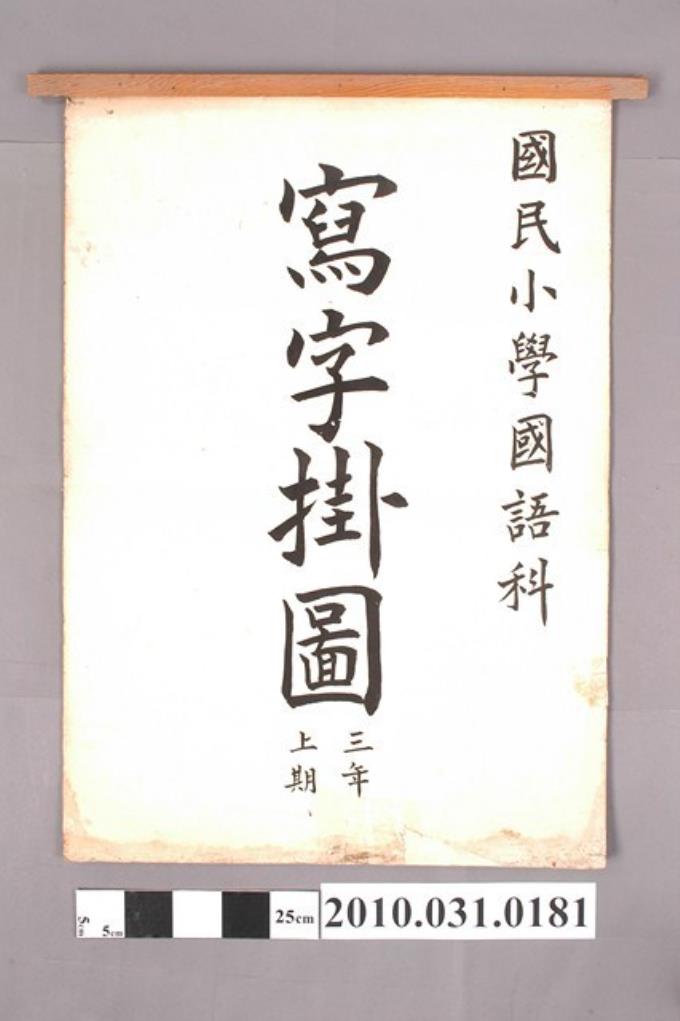 國民小學國語科
寫字掛圖
三年
上期
5cm
5cm
25cm
2010.031.0181